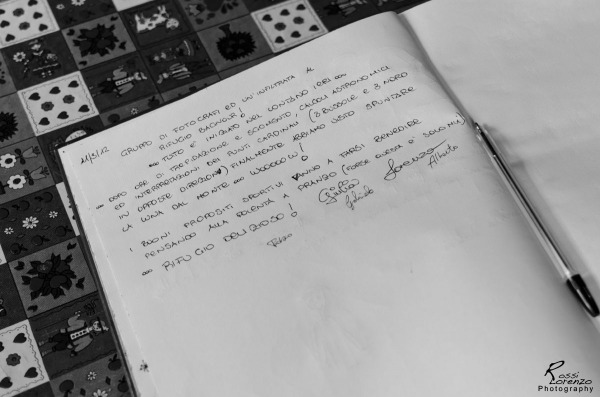 11/3/12 GRUPPO DI FOTOGRAFI ED UN'INFILTRATA AL
RIFUGIO BAGNOUR!
... TUTTO È INIZIATO NEL LONTANO IERI ...
... DOPO ORE DI TREPIDAZIONE E ECONOMICI CALCOLI ASTRONOMICI
ED INTERPRETAZIONI DEI PUNTI CARDINALI (3 BUSSOLE E 3 NORD
IN OPPOSTE DIREZIONI) FINALMENTE ABBIAMO VISTO SPUNTARE
LA LUNA DAL MONTE ... WOOOOW!
I BUONI PROPOSITI SPORTIVI VANNO A FARSI BENEDIRE
PENSANDO ALLA POLENTA A PRANZO (FORSE QUESTA È SOLO MIA)
... RIFUGIO DELIZIOSO!
Lorenzo
Alberto
Rossi
Lorenzo
Photography